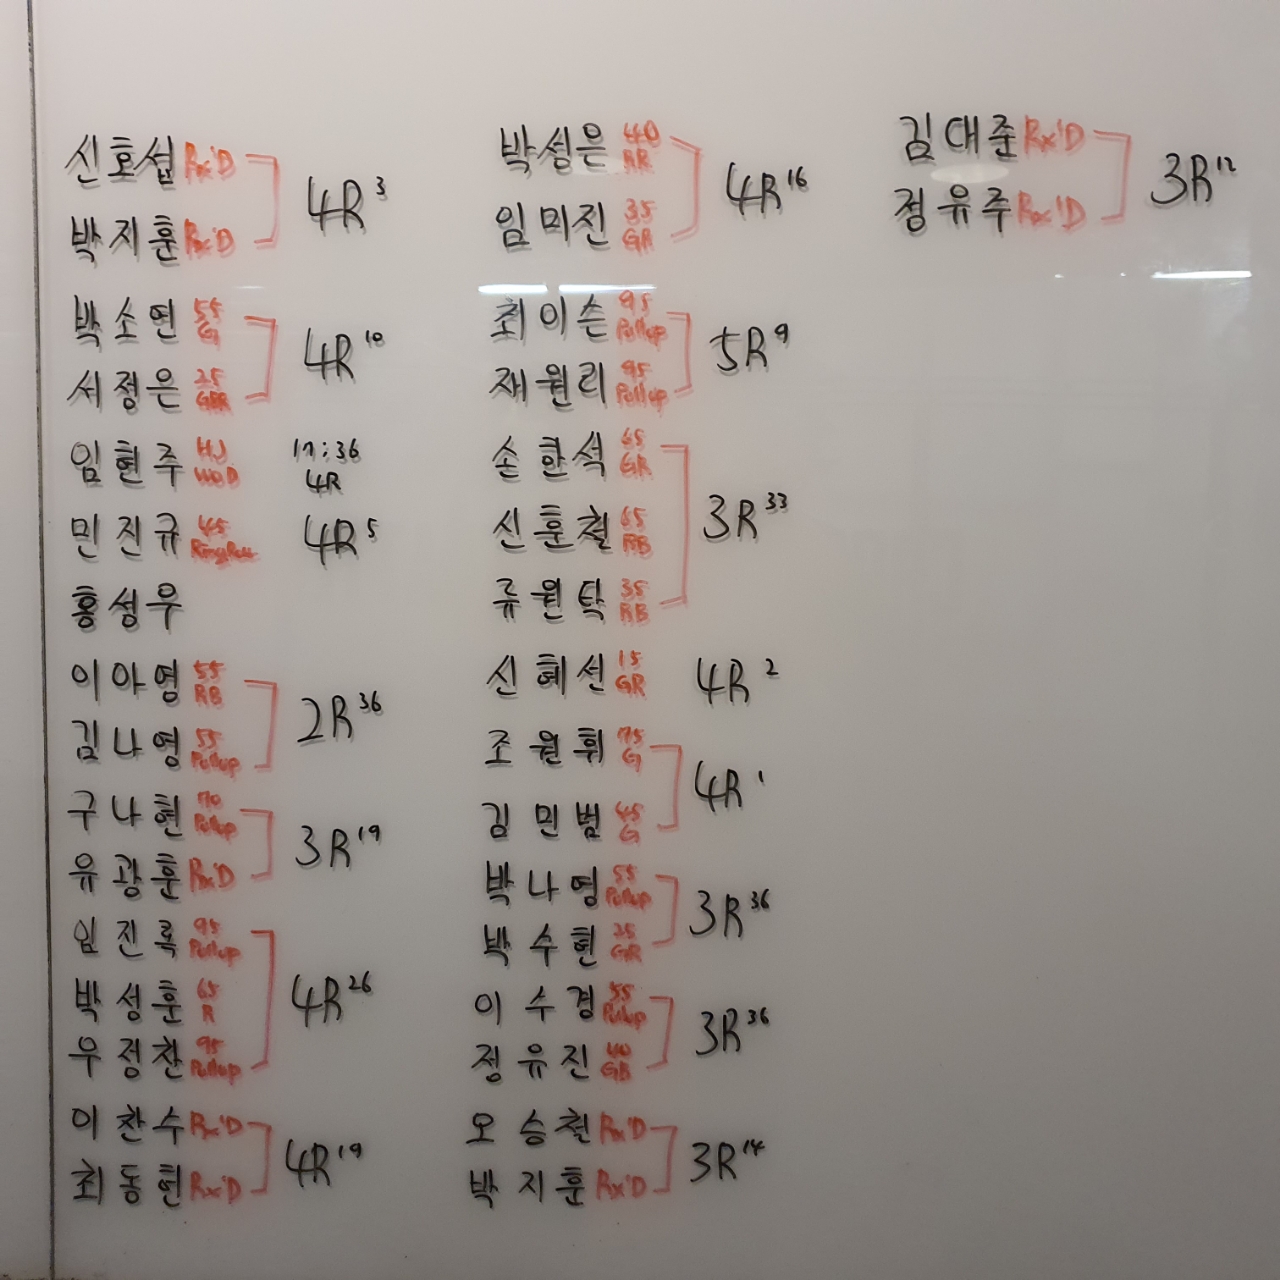 신호섭 Rx'D
박지훈 Rx'D
4R 3
박소연 55 G
서정은 25 GBR
4R 10
임현주 HJ WOD 17:36 4R
민진규 45 RingRow 4R 5
홍성우
이아영 55 RB
김나영 55 Pullup
2R 36
구나현 70 Pullup
유광훈 Rx'D
3R 19
임진록 95 Pullup
박성훈 65 R
우정찬 95 Pullup
4R 26
이찬수 Rx'D
최동현 Rx'D
4R 19
박성은 40 RR
임미진 35 GR
4R 16
최이슨 95 Pullup
재원리 95 Pullup
5R 9
손한석 65 GR
신훈철 65 RB
류원탁 35 RB
3R 33
신혜선 15 GR 4R 2
조원휘 75 G
김민범 45 G
4R 1
박나영 55 Pullup
박수현 25 GR
3R 36
이수경 55 Pullup
정유진 40 GB
3R 36
오승철 Rx'D
박지훈 Rx'D
3R 14
김대준 Rx'D
정유주 Rx'D
3R 12